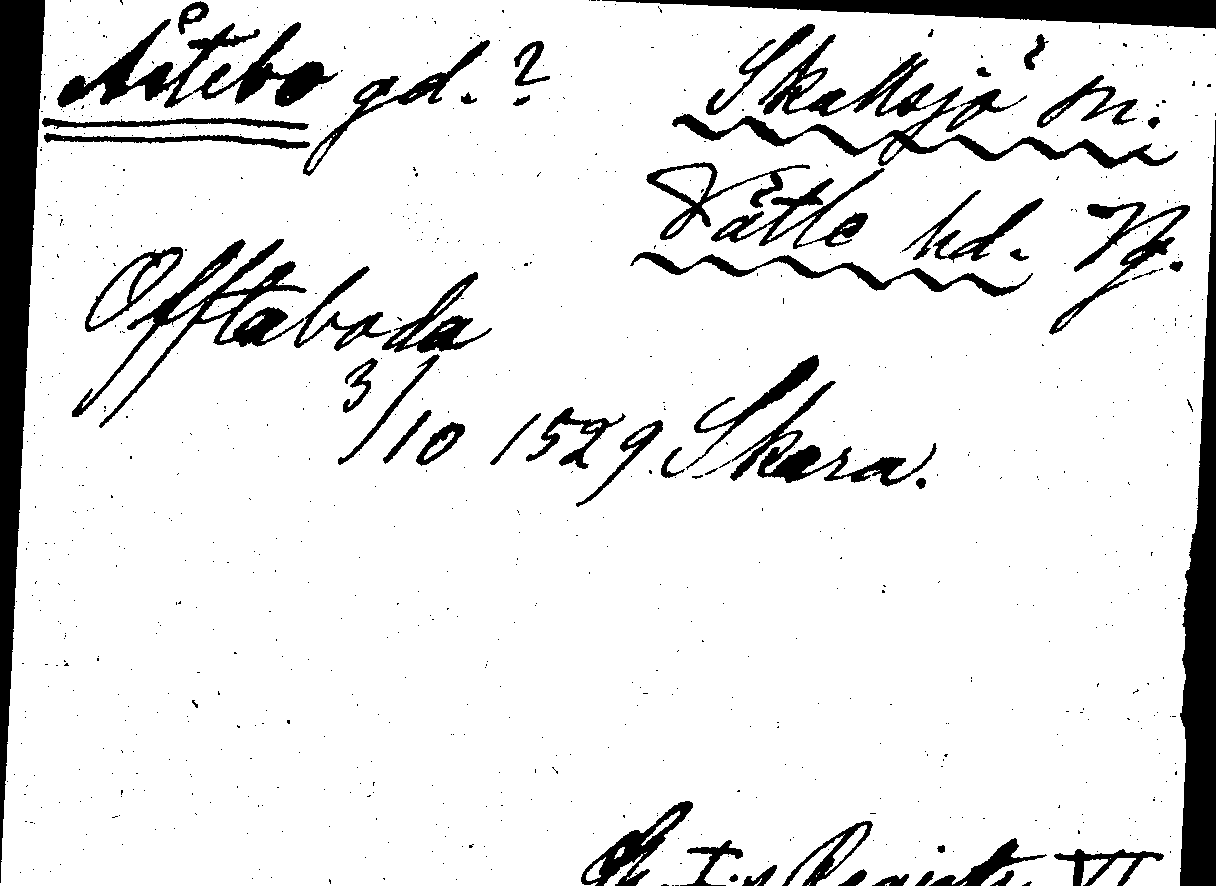 Åstebo gd.? Skallsjö sn.
Vättle hd. Vg.
Offtaboda
3/10 1529 Skara.
G. I:s Registr. VI